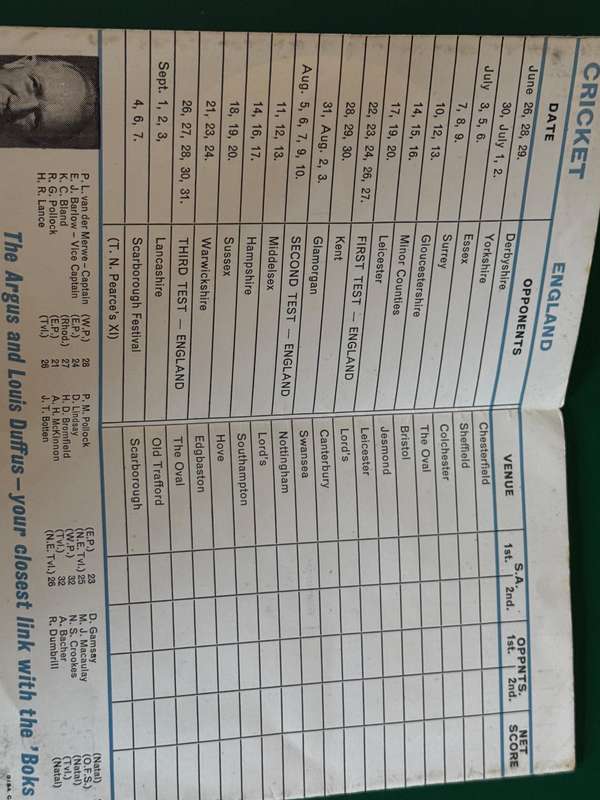 CRICKET ENGLAND
DATE OPPONENTS VENUE S.A. OPPNTS. NET SCORE
1st. 2nd. 1st. 2nd.
June 26, 28, 29. Derbyshire Chesterfield
30, July 1, 2. Yorkshire Sheffield
July 3, 5, 6. Essex Colchester
7, 8, 9. Surrey The Oval
10, 12, 13. Gloucestershire Bristol
14, 15, 16. Minor Counties Jesmond
17, 19, 20. Leicester Leicester
22, 23, 24, 26, 27. FIRST TEST — ENGLAND Lord's
28, 29, 30. Kent Canterbury
31, Aug. 2, 3. Glamorgan Swansea
Aug. 5, 6, 7, 9, 10. SECOND TEST — ENGLAND Nottingham
11, 12, 13. Middelsex Lord's
14, 16, 17. Hampshire Southampton
18, 19, 20. Sussex Hove
21, 23, 24. Warwickshire Edgbaston
26, 27, 28, 30, 31. THIRD TEST — ENGLAND The Oval
Sept. 1, 2, 3, Lancashire Old Trafford
4, 6, 7. Scarborough Festival Scarborough
(T. N. Pearce's XI)
P. L. van der Merwe – Captain (W.P.) 28 P. M. Pollock (E.P.) 23 D. Gamsay (Natal)
E. J. Barlow – Vice Captain (E.P.) 24 D. Lindsay (N.E. Tvl.) 25 M. J. Macaulay (O.F.S.)
K. C. Bland (Rhod.) 27 H. D. Bromfield (W.P.) 32 N. S. Crookes (Natal)
R. G. Pollock (E.P.) 21 A. H. McKinnon (Tvl.) 32 A. Bacher (Tvl.)
H. R. Lance (Tvl.) 26 J. T. Botten (N.E. Tvl.) 26 R. Dumbrill (Natal)
The Argus and Louis Duffus – your closest link with the 'Boks